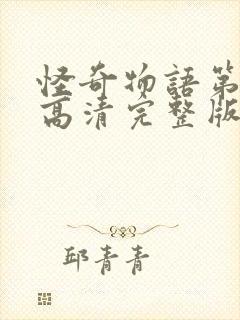 怪奇物語第
高清完整版
邱青青